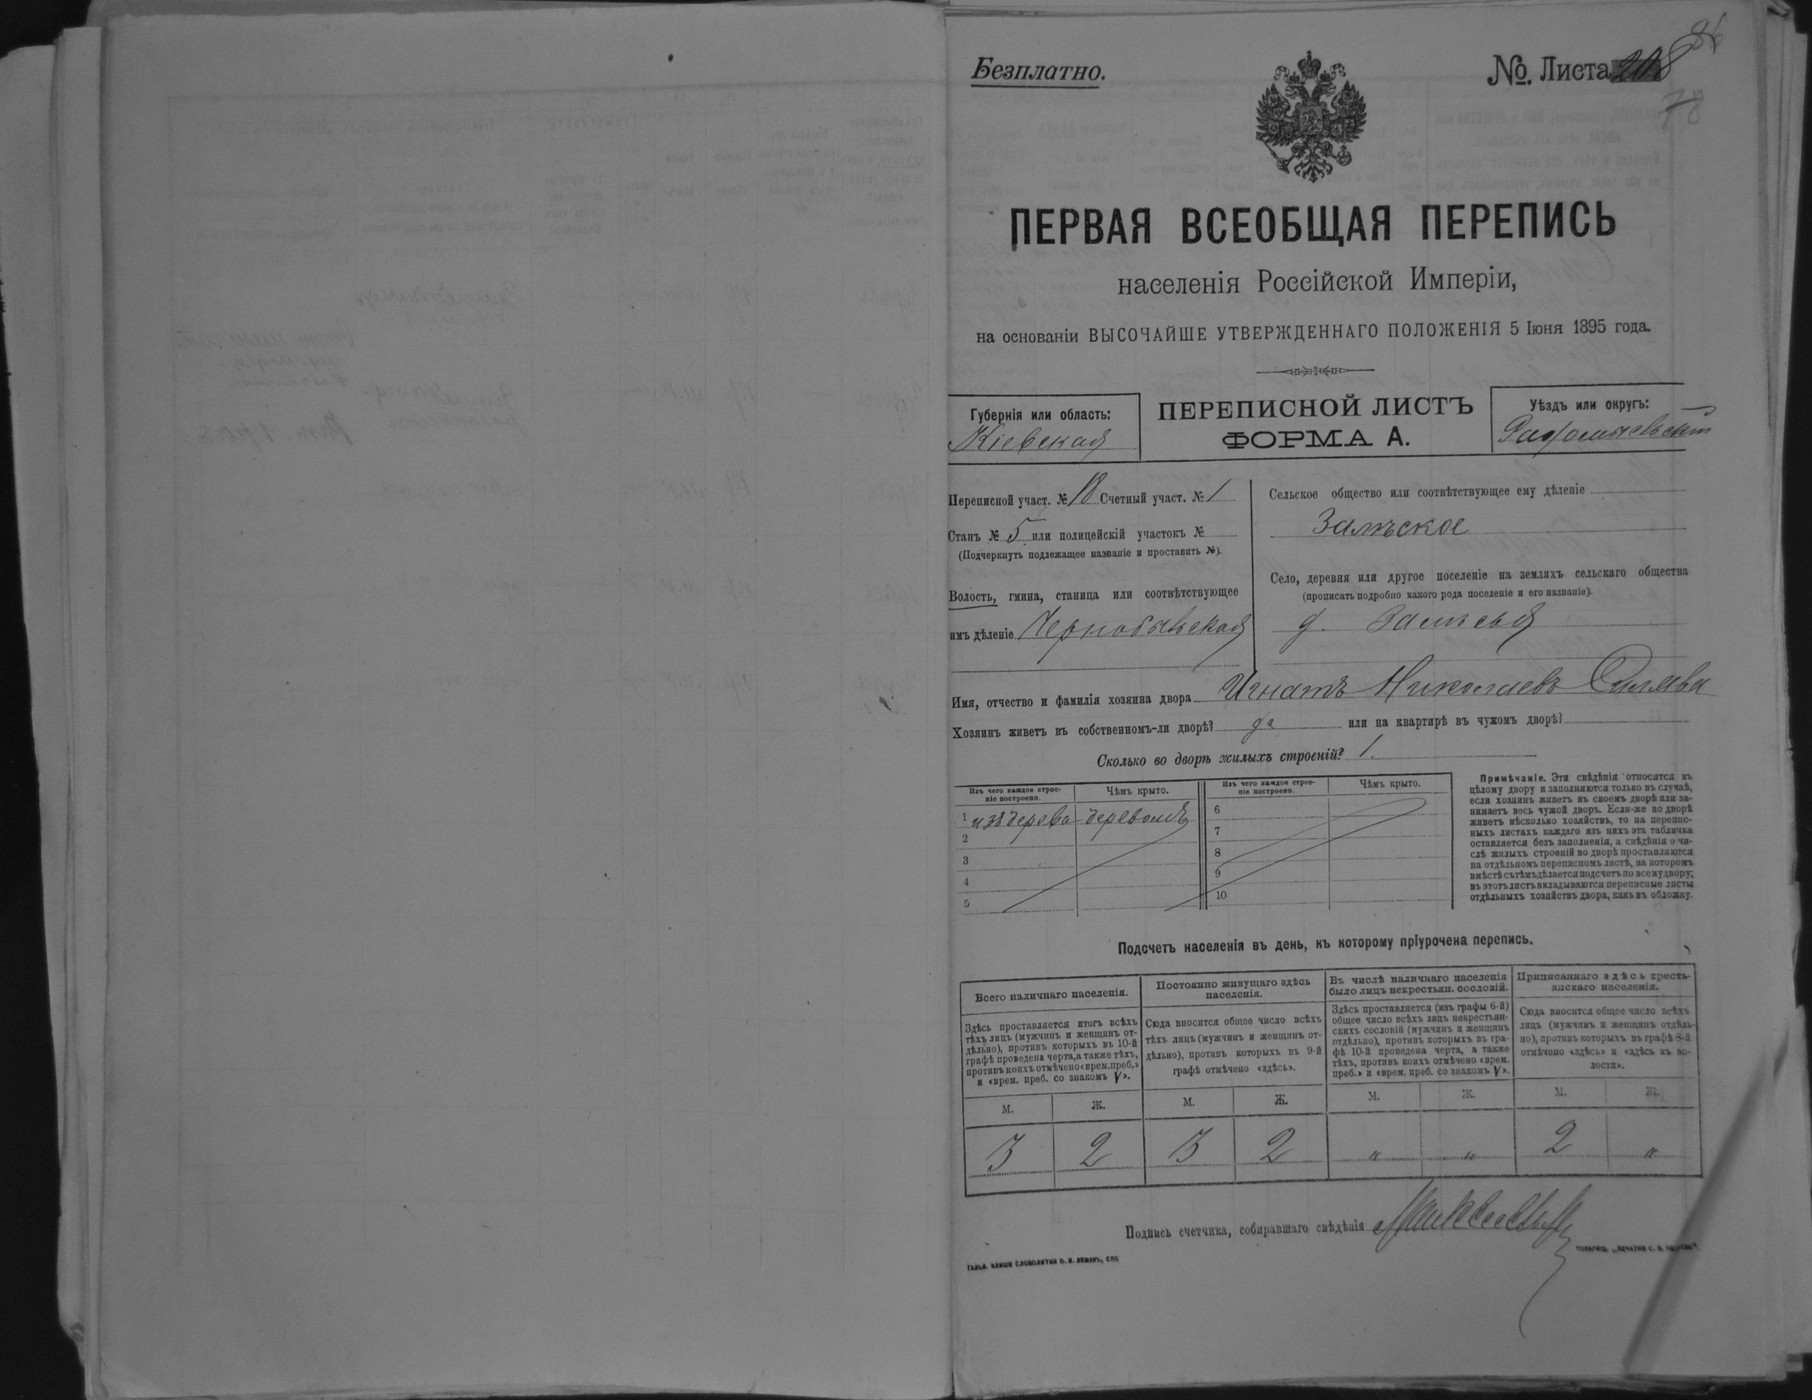 86
Безплатно.
№. Листа 208
78
ПЕРВАЯ ВСЕОБЩАЯ ПЕРЕПИСЬ
населенія Россійской Имперіи,
на основаніи ВЫСОЧАЙШЕ УТВЕРЖДЕННАГО ПОЛОЖЕНІЯ 5 Іюня 1895 года.
Губернія или область:
Кіевская
ПЕРЕПИСНОЙ ЛИСТЪ
ФОРМА А.
Уѣздъ или округъ:
Радомысльскій
Переписной участ. № 18 Счетный участ. № 1
Станъ № 5 или полицейскій участокъ №
(Подчеркнуть подлежащее названіе и проставить №).
Волость, гмина, станица или соотвѣтствующее
имъ дѣленіе Чернобыльская
Сельское общество или соотвѣтствующее ему дѣленіе
Залѣское
Село, деревня или другое поселеніе на земляхъ сельскаго общества
(прописать подробно какого рода поселеніе и его названіе)
д. Залѣсья
Имя, отчество и фамилія хозяина двора Игнатъ Николаевъ
Хозяинъ живетъ въ собственномъ-ли дворѣ? да или на квартирѣ въ чужомъ дворѣ?
Сколько во дворѣ жилыхъ строеній? 1.
Изъ чего каждое строе-
ніе построено.
Чѣмъ крыто.
Изъ чего каждое строе-
ніе построено.
Чѣмъ крыто.
1 изъ дерева деревомъ
2
3
4
5
6
7
8
9
10
Примѣчаніе. Эти свѣдѣнія относятся къ
цѣлому двору и заполняются только въ случаѣ,
если хозяинъ живетъ въ своемъ дворѣ или за-
нимаетъ весь чужой дворъ. Если-же во дворѣ
живетъ нѣсколько хозяйствъ, то на перепис-
ныхъ листахъ каждаго изъ нихъ эта табличка
оставляется безъ заполненія, а свѣдѣнія о чи-
слѣ жилыхъ строеній во дворѣ проставляются
на отдѣльномъ переписномъ листѣ, на которомъ
вмѣстѣ съ тѣмъ дѣлается подсчетъ по всему двору;
въ этотъ листъ вкладываются переписные листы
отдѣльныхъ хозяйствъ двора, какъ въ обложку.
Подсчетъ населенія въ день, къ которому пріурочена перепись.
Всего наличнаго населенія.
Здѣсь проставляется итогъ всѣхъ
тѣхъ лицъ (мужчинъ и женщинъ от-
дѣльно), противъ которыхъ въ 10-й
графѣ проведена черта, а также тѣхъ,
противъ коихъ отмѣчено «врем. преб.»
и «врем. преб. со знакомъ V».
Постоянно живущаго здѣсь
населенія.
Сюда вносится общее число всѣхъ
тѣхъ лицъ (мужчинъ и женщинъ от-
дѣльно), противъ которыхъ въ 9-й
графѣ отмѣчено «здѣсь».
Въ числѣ наличнаго населенія
было лицъ некрестьян. сословій.
Здѣсь проставляется (изъ графы 6-й)
общее число всѣхъ лицъ некрестьян-
скихъ сословій (мужчинъ и женщинъ
отдѣльно), противъ которыхъ въ гра-
фѣ 10-й проведена черта, а также
тѣхъ, противъ коихъ отмѣчено «врем.
преб.» и «врем. преб. со знакомъ V».
Приписаннаго здѣсь кресть-
янскаго населенія.
Сюда вносится общее число всѣхъ
лицъ (мужчинъ и женщинъ отдѣль-
но), противъ которыхъ въ графѣ 8-й
отмѣчено «здѣсь» и «здѣсь къ во-
лости».
М. Ж. М. Ж. М. Ж. М. Ж.
3 2 3 2 " " 2 "
Подпись счетчика, собиравшаго свѣдѣнія
ГАЛЬВ. КЛИШЕ СЛОВОЛИТНИ О. И. ЛЕМАНЪ, СПБ